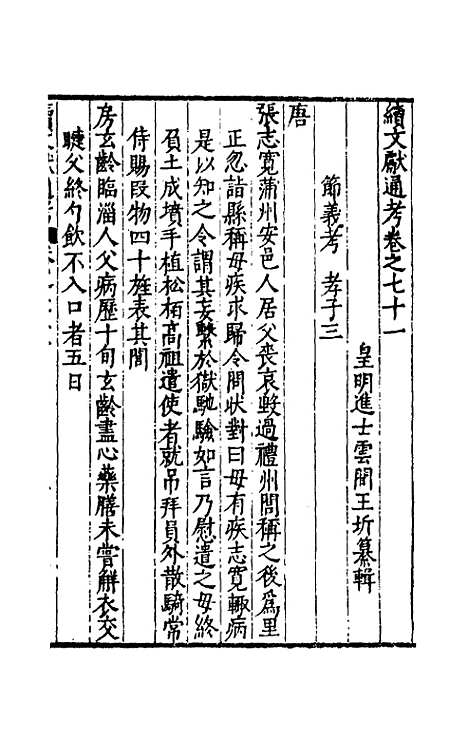 續文獻通考卷之七十一
皇明進士雲間王圻纂輯
節義考 孝子三
唐
張志寬蒲州安邑人居父喪哀毀過禮州閭稱之後爲里
正忽詣縣稱母疾求歸令問狀對曰母有疾志寬輙病
是以知之令謂其妄繫於獄馳驗如言乃慰遣之母終
負土成墳手植松栢高祖遣使者就吊拜員外散騎常
侍賜叚物四十旌表其閭
房玄齡臨淄人父病歷十旬玄齡盡心藥膳未嘗觧衣交
睫父終勺飲不入口者五日